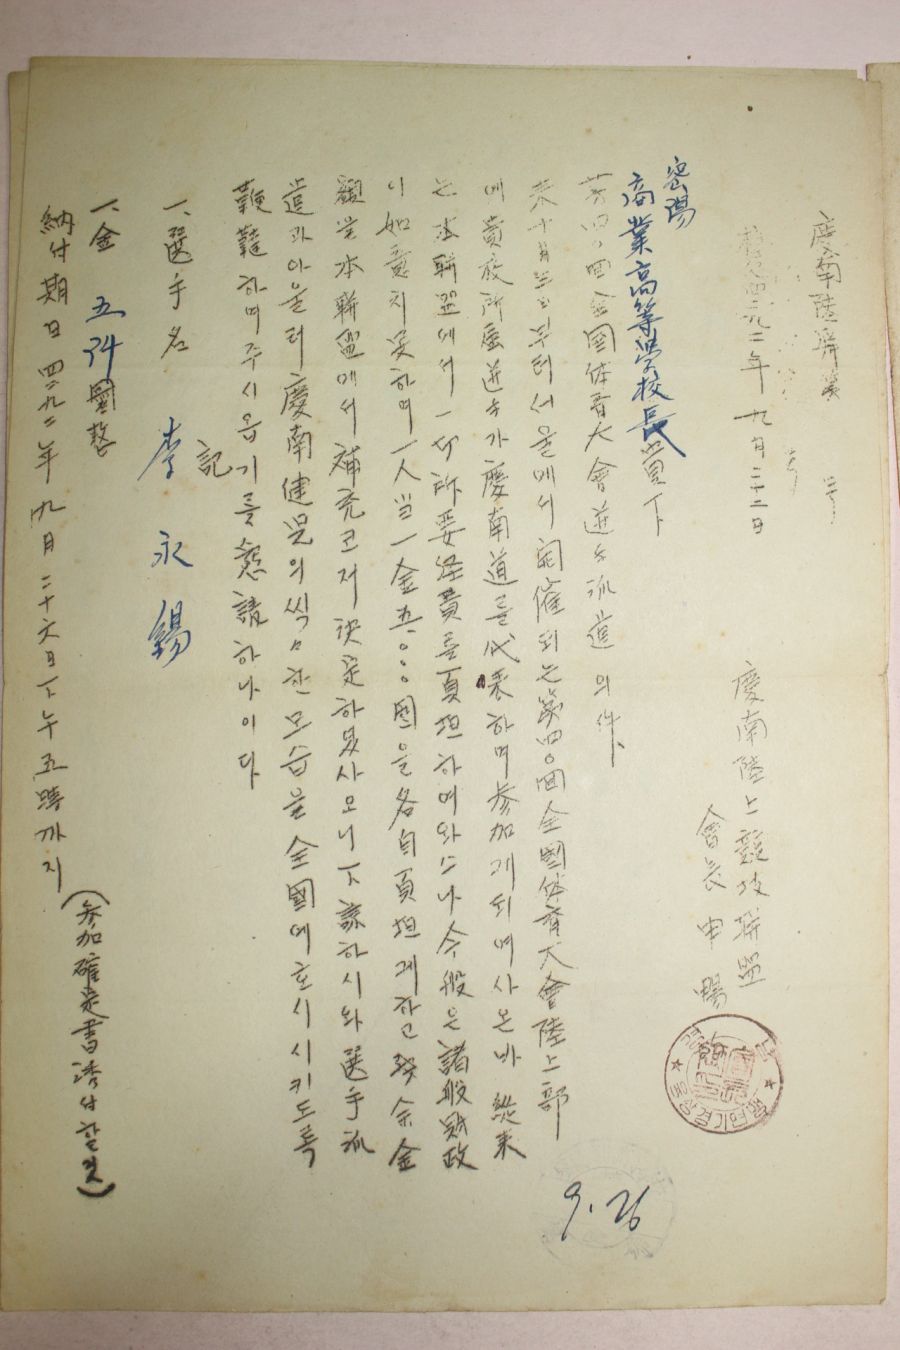 慶南陸聯第 号
檀紀四二九二年 九月二十二日
慶南陸上競技聯盟
會長 申暢
密陽
商業高等學校長貴下
第四〇回全國体育大會選手派遣의件
来十月三日부터서울에서開催되는第四〇回全國体育大會陸上部
에貴校所屬選手가慶南道를代表하며参加케되여사온바 縱来
는本聯盟에서一切所要経費를負担하여와스나今般은諸般財政
이如意치못하며一人当一金五〇〇〇圜을各自負担케하고残余金
額은本聯盟에서補充코저決定하였사오니下諒하시와選手派
遣과아울러慶南健児의씩々한모습을全國에호시시키도록
鞭韃하며주시옵기를懇請하나이다
記
一、選手名 李永錫
一、金 五仟圜整
納付期日四二九二年九月二十六日下午五時까지
(参加確定書添付할것)
9.26